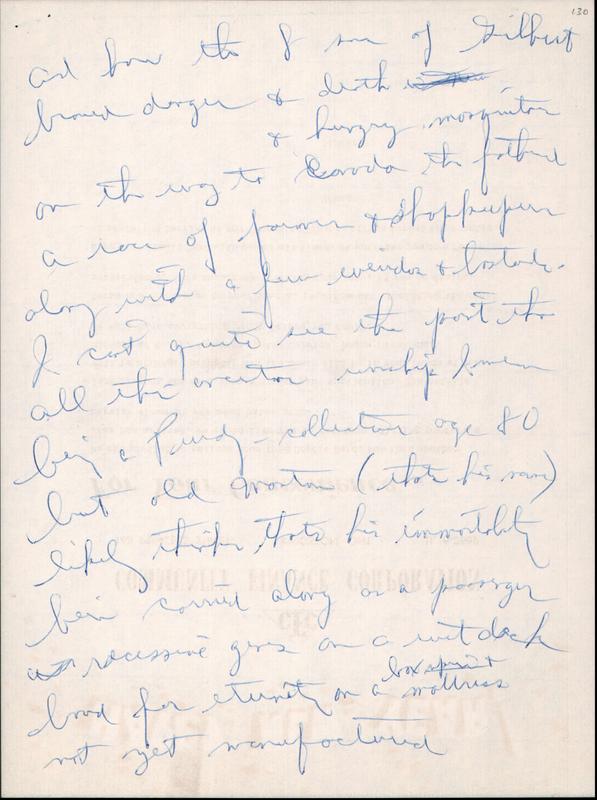 130
and how the 8 sons of Gilbert
braved danger & death
& hungry mosquitos
on the way to Canada the father
a race of farmers & shopkeepers
along with a few weirdos & bastards.
I cant quite see the point tho
all this ancestor worship
being a Purdy – collective age 80
but old (thats his name)
likely thinks thats his immortality
being carried along as a passenger
as recessive genes on a wet deck
box spring
bound for eternity on a mattress
not yet manufactured